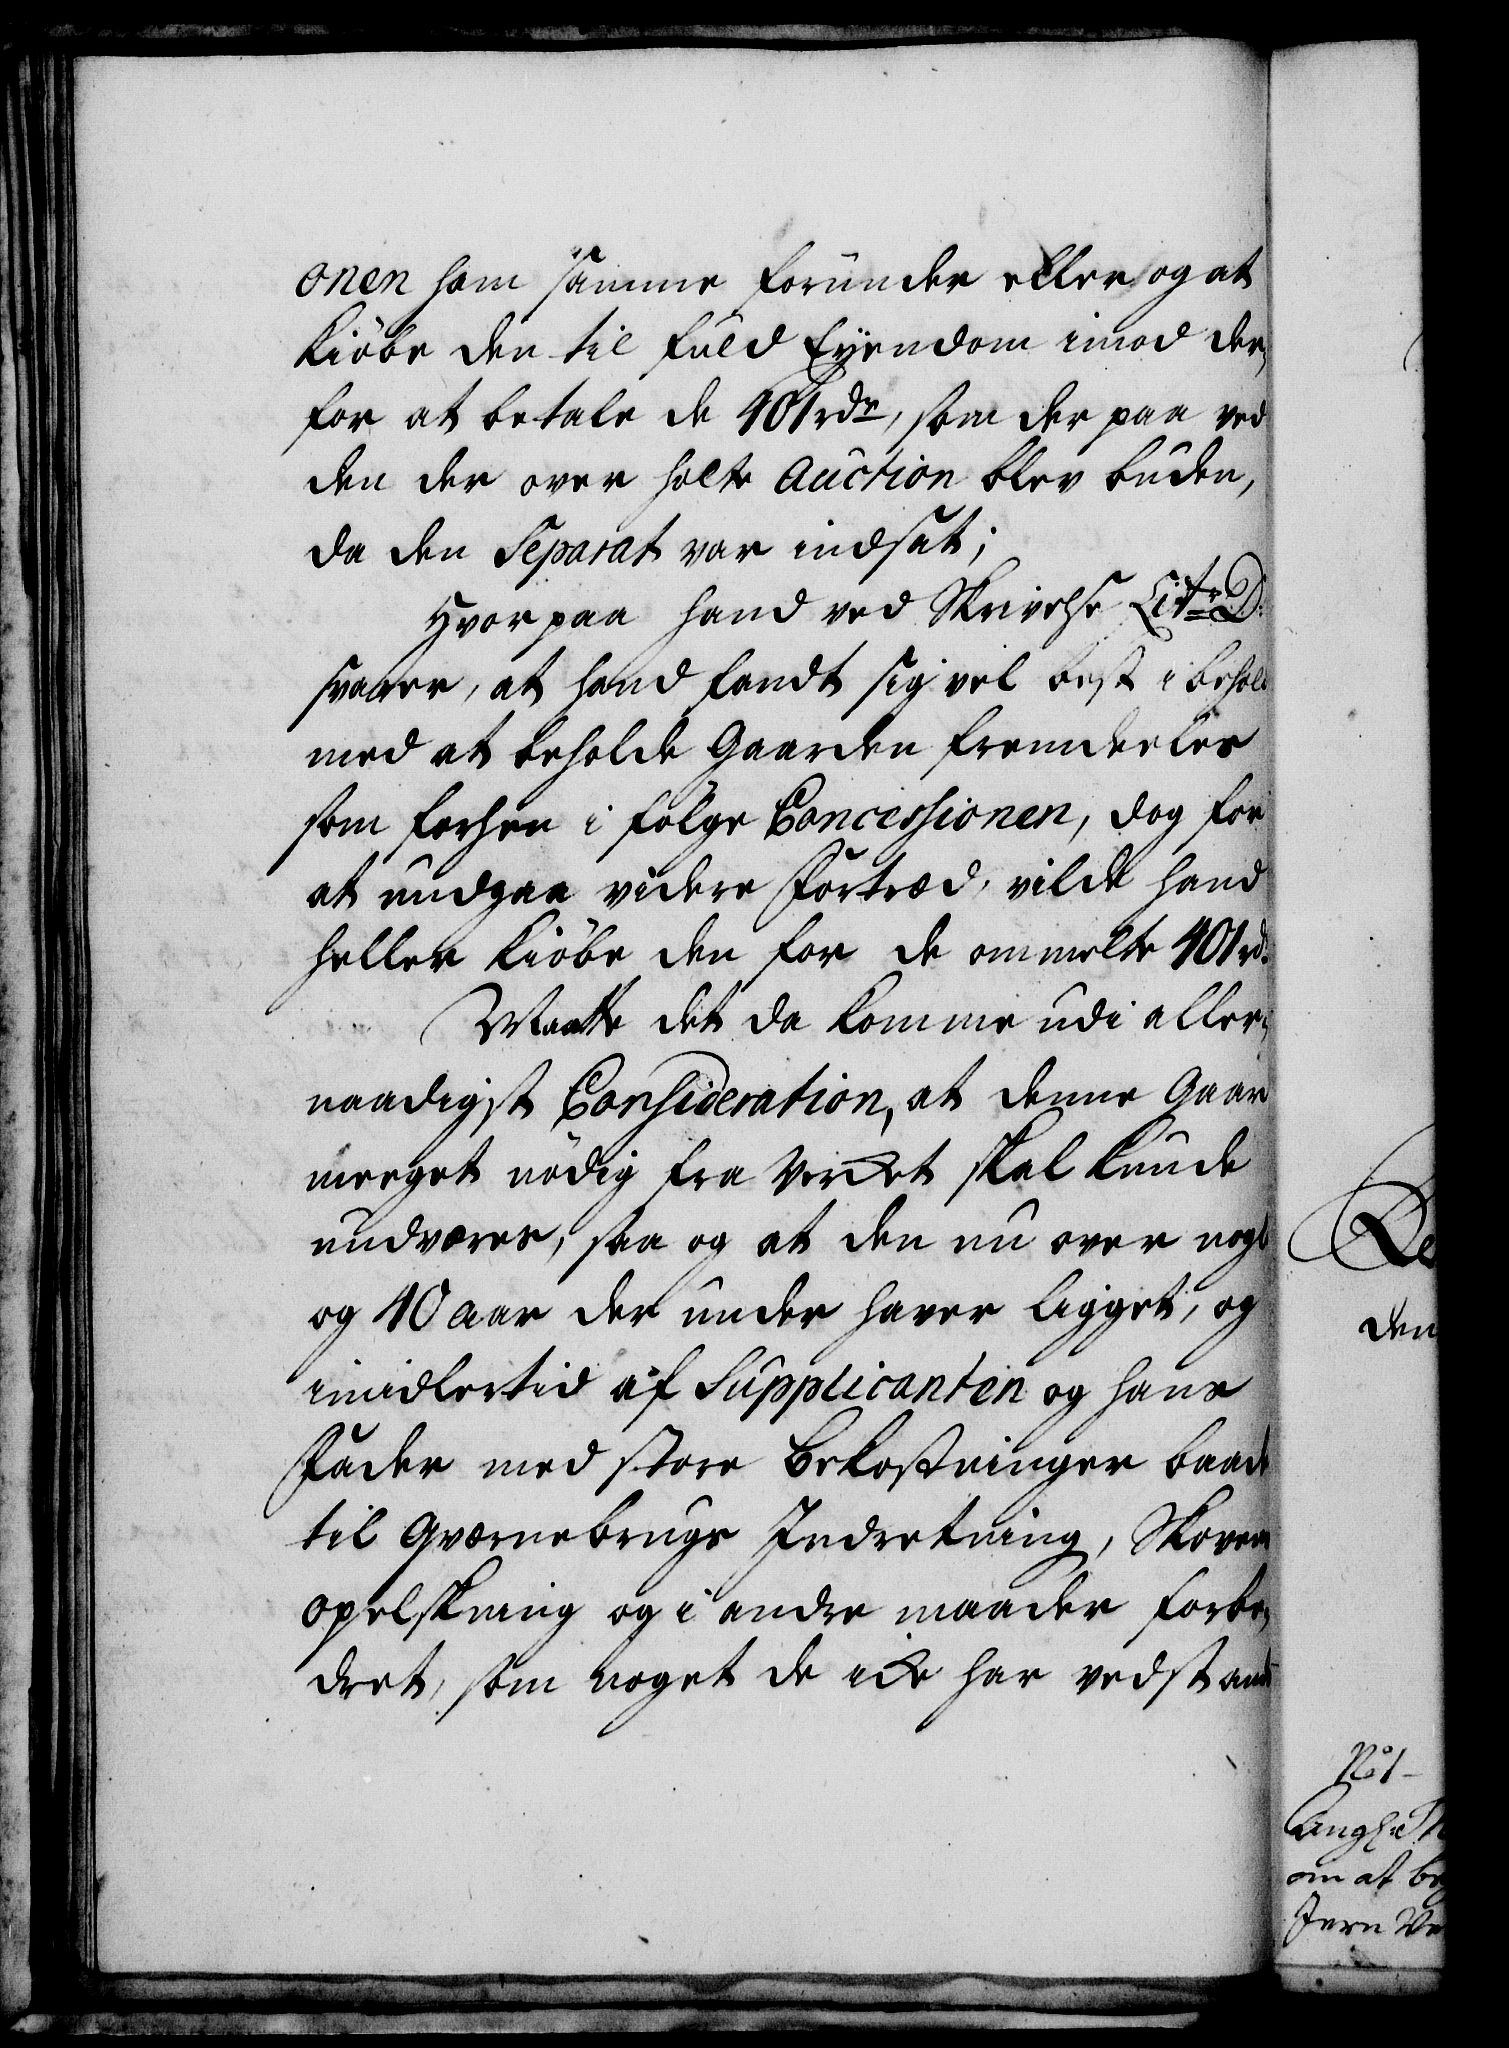 onen ham samme forunder eller og at
Kiöbe den til fuld Eyendom imod der,
for at betale de 401 rdr, som der paa ved
den der over holte Auction blev buden,
da den Separat var indsat;
Hvorpaa hand ved Skrivelse Litr D:
svarer, at hand fandt sig vel best i behold
med at beholde Gaarden fremdeeles
som forhen i fölge Concessionen, dog for
at undgaa videre Fortræd, vilde hand
heller Kiöbe den for de ommelte 401 rd:
Maatte det da komme udi aller,
naadigst Consideration, at denne Gaar
meeget nödig fra Vercket skal kunde
undværes, saa og at den nu over nogl
og 40 aar der under haver ligget, og
imidlertid af Supplicanten og hans
Fader med store Bekostninger baade
til Qværnebrugs Indretning, Skovens
opelskning og i andre maader forbe,
dret, som noget de icke har vedstand
De
den
No 1
om at be
Jern Ve